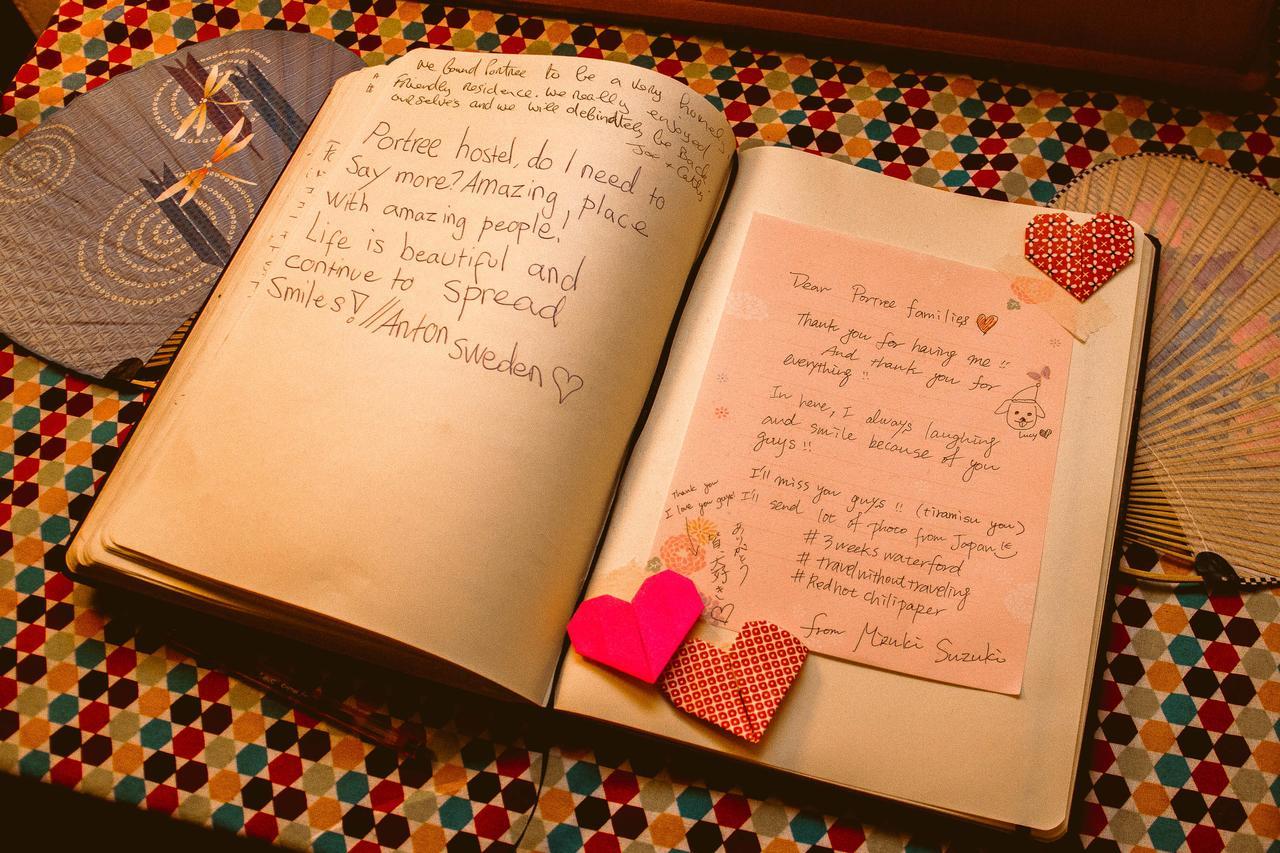 We found Portree to be a very homely
friendly residence. We really enjoyed
ourselves and we will definitely be Back.
Joe + Cathy
Portree hostel, do I need to
Say more? Amazing place
with amazing people!
Life is beautiful and
continue to spread
Smiles! //Anton
Sweden ♡
Dear Portree families
Thank you for having me !!
And thank you for
everything !!
In here, I always laughing
and smile because of you
guys !!
I'll miss you guys !! (tiramisu you)
I'll send lot of photo from Japan
# 3 weeks waterford
# travelwithouttraveling
# Redhot chilipaper
from Mizuki Suzuki
Lucy
Thank you
I love you guys!
ありがとう
大好き